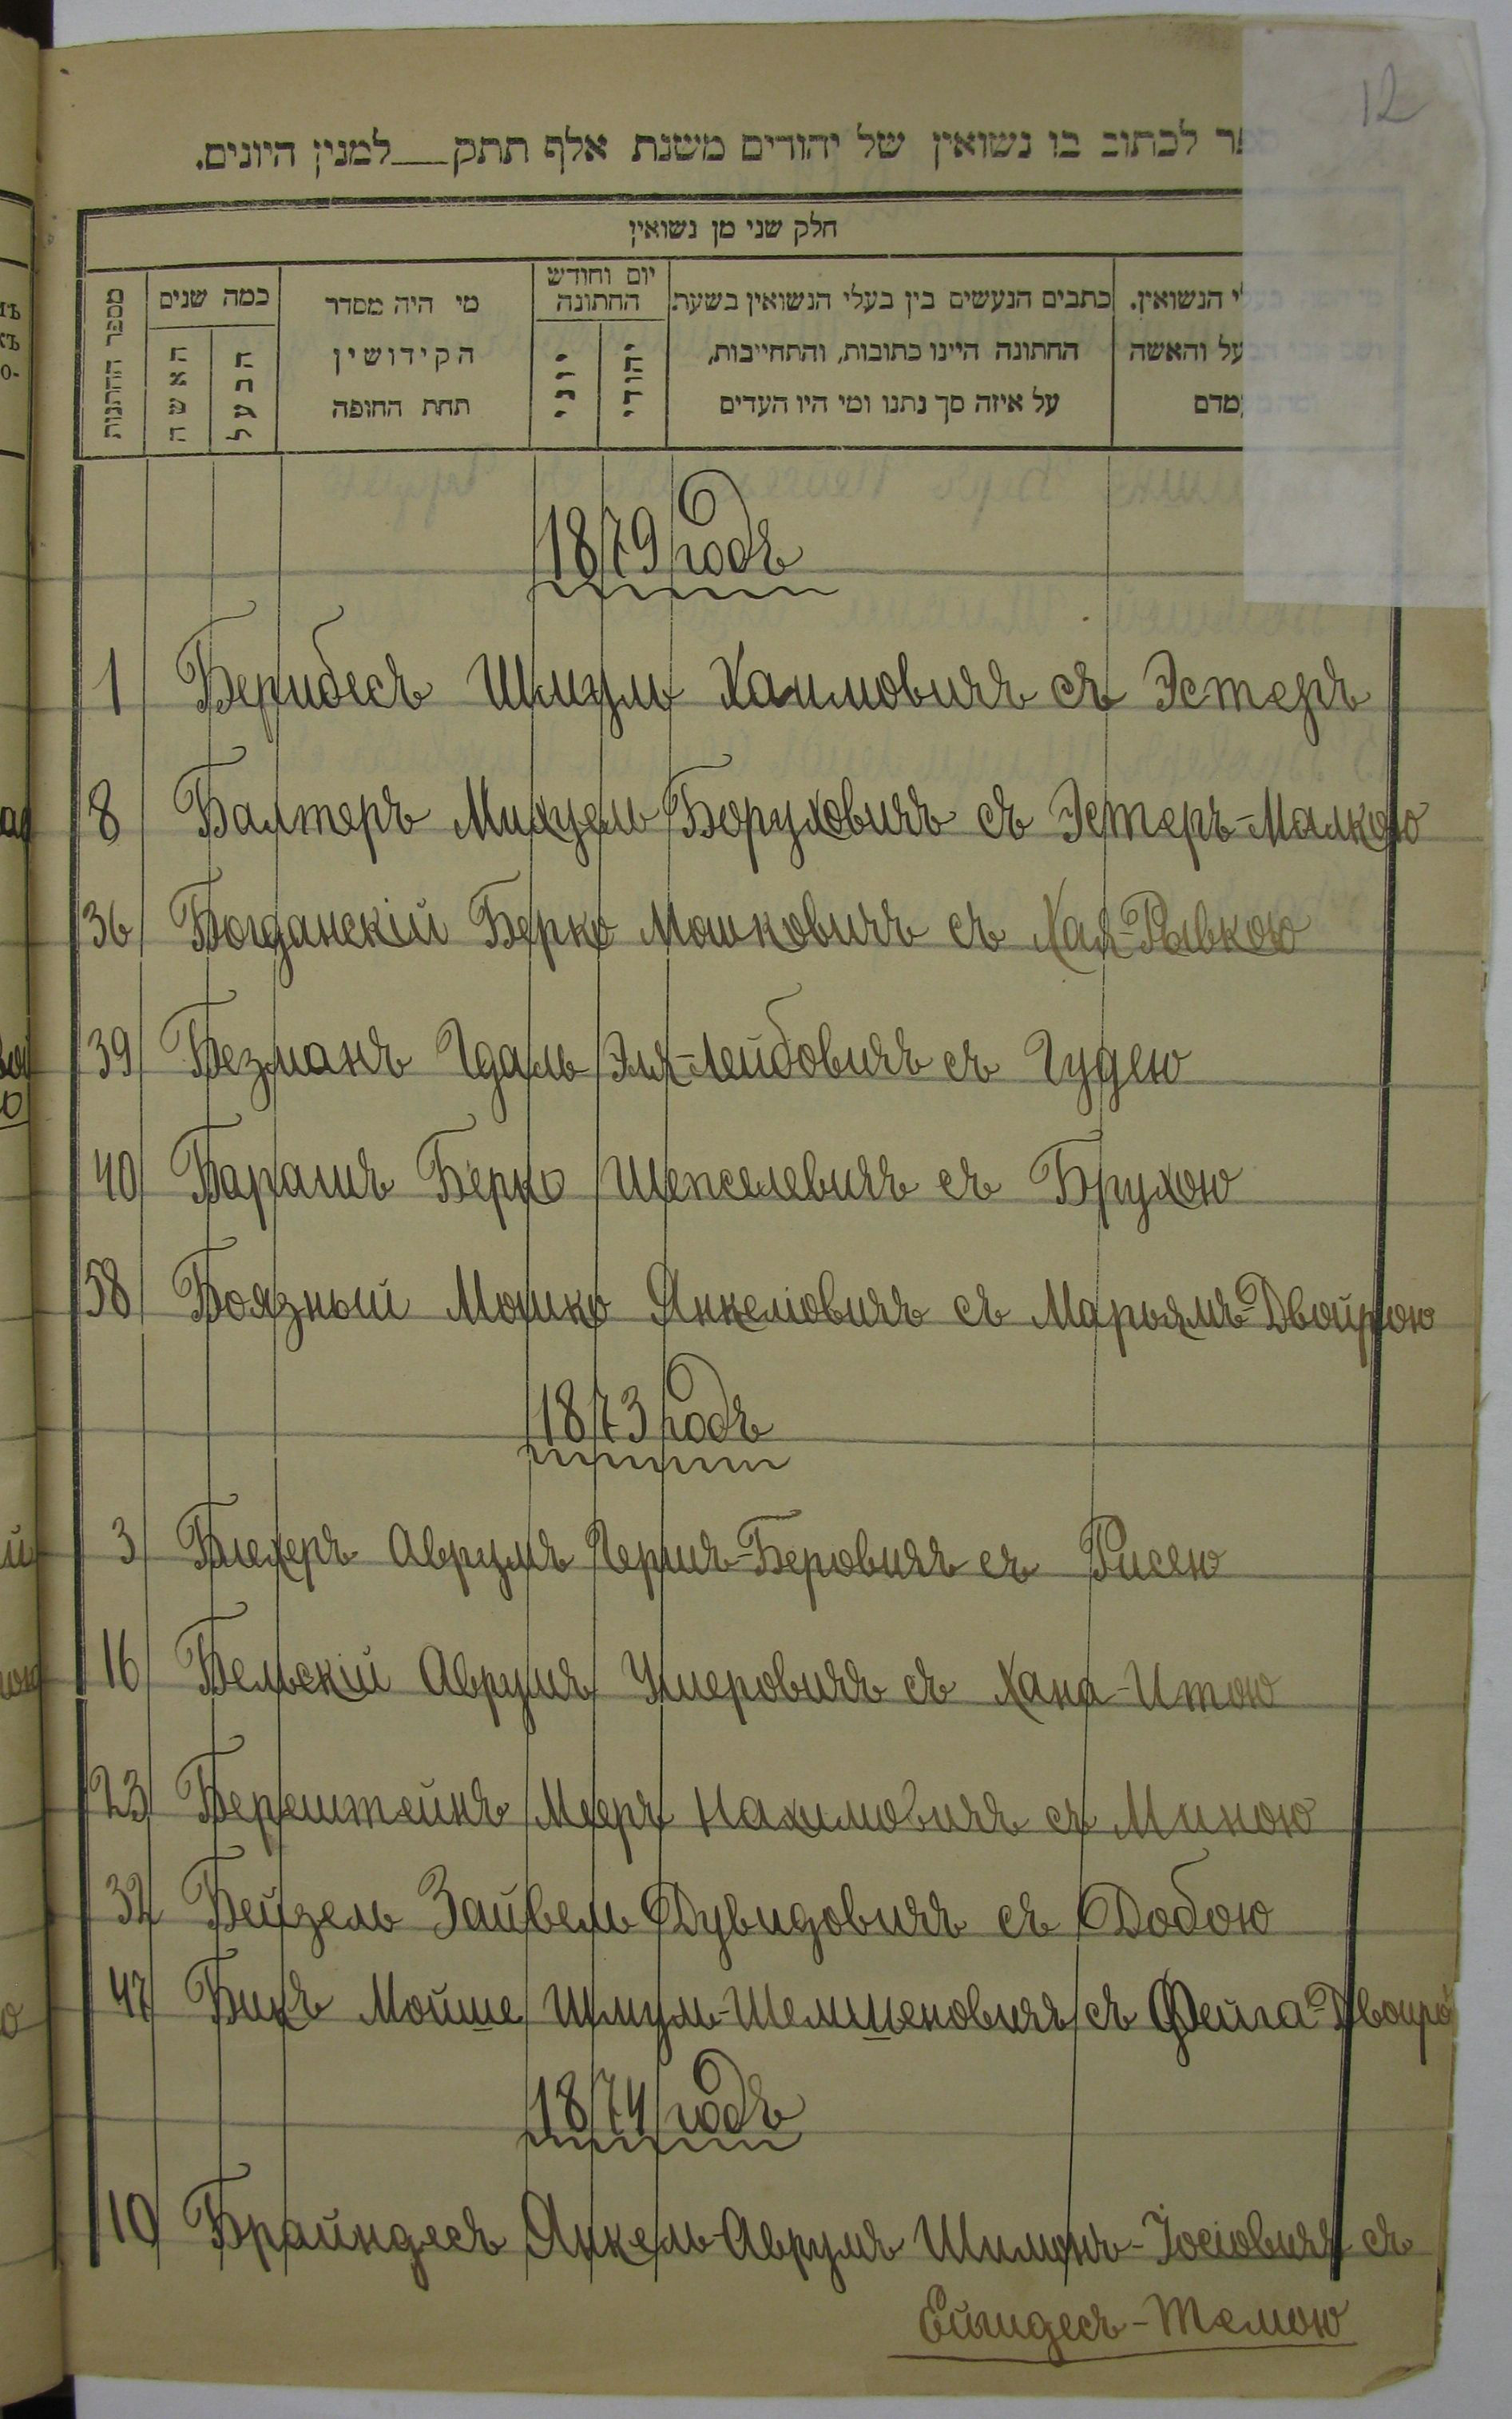 12
ספר לכתוב בו נשואין של יהודים משנת אלף תתק___למנין היונים.
חלק שני מן נשואין
מספר החתנות
כמה שנים
האשה
הבעל
מי היה מסדר
הקידושין
תחת החופה
יום וחודש
החתונה
יוני
יהודי
כתבים הנעשים בין בעלי הנשואין בשעת
החתונה היינו כתובות, והתחייבות,
על איזה סך נתנו ומי היו העדים
הנשואין.
והאשה
1879 годъ
1 Берибесъ Шмуль Хаимовичъ съ Эстеръ
8 Балтеръ Михуель Боруховичъ съ Эстеръ-Малкою
36 Богданскій Берко Мошковичъ съ Хая-Рывкою
39 Безманъ Гдаль Эля-Лейбовичъ съ Гудею
40 Барашъ Берко Шепселевичъ съ Брухою
58 Боязный Мошко Янкеліовичъ съ Марьямъ-Двойрою
1873 годъ
3 Блехеръ Аврумъ Гершъ-Беровичъ съ Рисею
16 Бельскій Аврумъ Ушеровичъ съ Хана-Итою
23 Беренштейнъ Мееръ Нахимовичъ съ Миною
32 Бейзель Зайвель Дувидовичъ съ Добою
47 Бикъ Мойше Шмуль-Шемшеновичъ съ Фейга-Двойро
1874 годъ
10 Брайндесъ Янкель-Аврумъ Шимонъ-Іосіовичъ съ
Ейндесъ-Темою